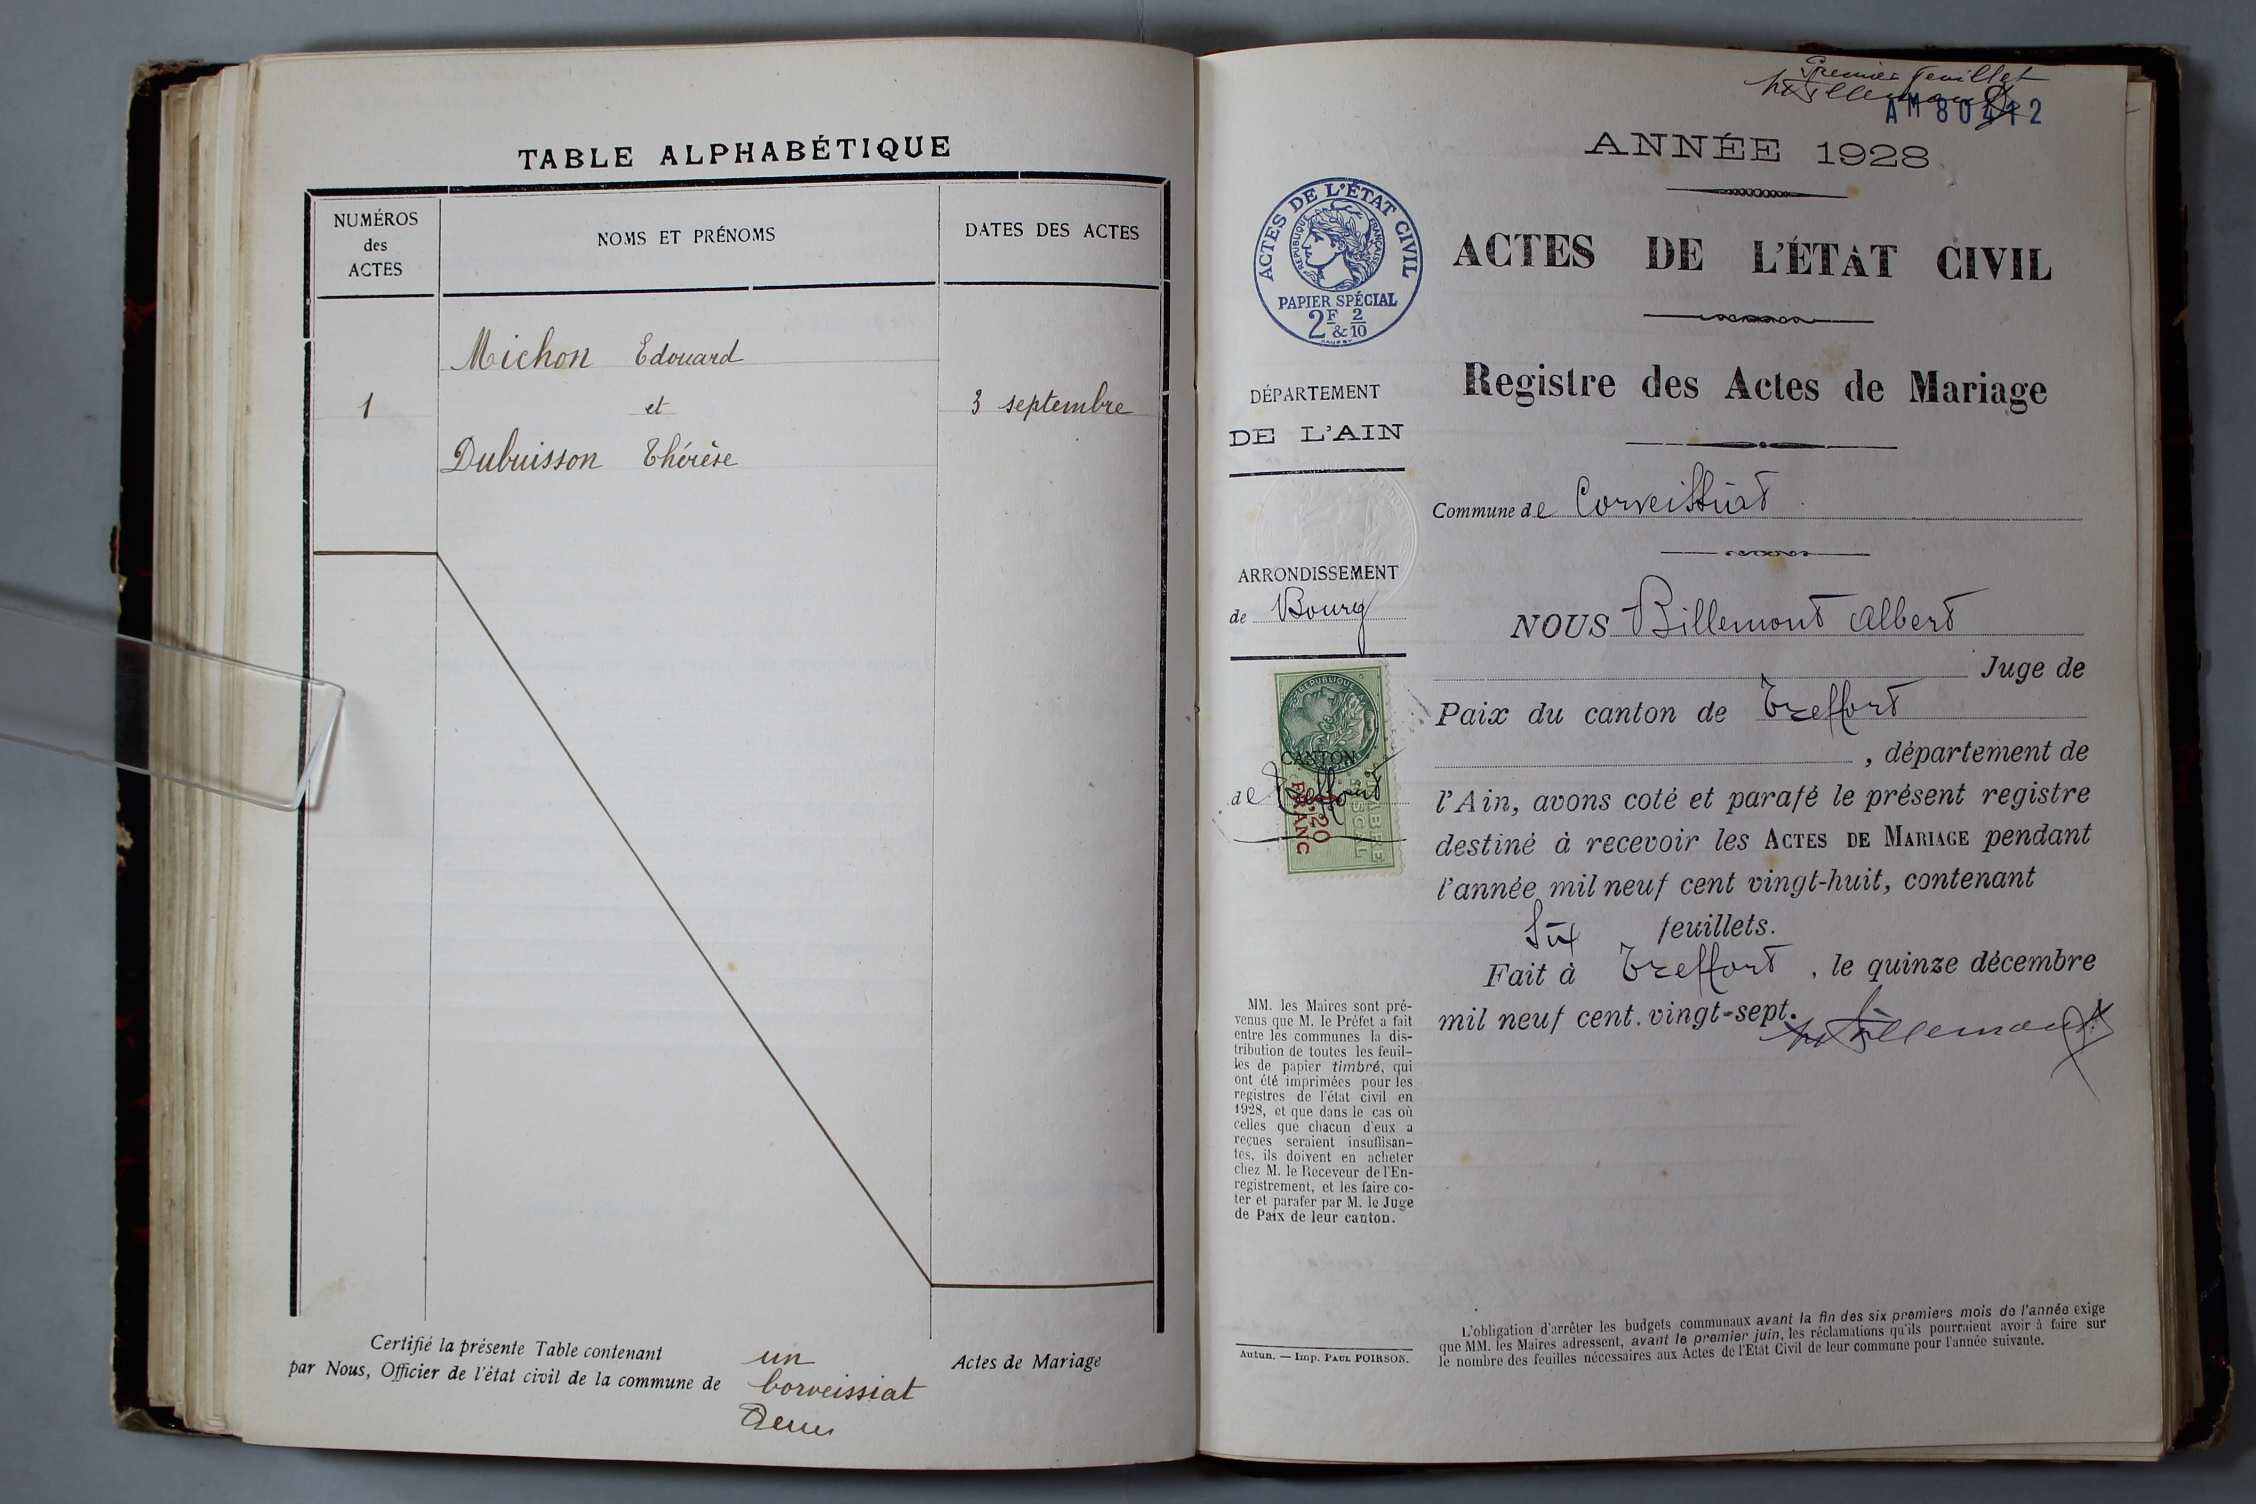 TABLE ALPHABÉTIQUE
NUMÉROS
des
ACTES
NOMS ET PRÉNOMS
DATES DES ACTES
Michon Edouard
1 et 3 septembre
Dubuisson Thérèse
Certifié la présente Table contenant un Actes de Mariage
par Nous, Officier de l'état civil de la commune de Corveissiat
Premier feuillet
AM80412
ANNÉE 1928
ACTES DE L'ÉTAT CIVIL
RÉPUBLIQUE FRANÇAISE
PAPIER SPÉCIAL
2F & 2/10
ACTES DE L'ÉTAT CIVIL
Registre des Actes de Mariage
DÉPARTEMENT
DE L'AIN
Commune de Corveissiat
ARRONDISSEMENT
de Bourg
RÉPUBLIQUE
CANTON
de Treffort
TIMBRE
FISCAL
1,20
FRANC
NOUS Billemont Albert
Juge de
Paix du canton de Treffort
, département de
l'Ain, avons coté et parafé le présent registre
destiné à recevoir les ACTES DE MARIAGE pendant
l'année mil neuf cent vingt-huit, contenant
Six feuillets.
Fait à Treffort, le quinze décembre
mil neuf cent vingt-sept.
Billemont
MM. les Maires sont pré-
venus que M. le Préfet a fait
entre les communes la dis-
tribution de toutes les feuil-
les de papier timbré, qui
ont été imprimées pour les
registres de l'état civil en
1928, et que dans le cas où
celles que chacun d'eux a
reçues seraient insuffisan-
tes, ils doivent en acheter
chez M. le Receveur de l'En-
registrement, et les faire co-
ter et parafer par M. le Juge
de Paix de leur canton.
Autun. — Imp. PAUL POIRSON.
L'obligation d'arrêter les budgets communaux avant la fin des six premiers mois de l'année exige
que MM. les Maires adressent, avant le premier juin, les réclamations qu'ils pourraient avoir à faire sur
le nombre des feuilles nécessaires aux Actes de l'Etat Civil de leur commune pour l'année suivante.